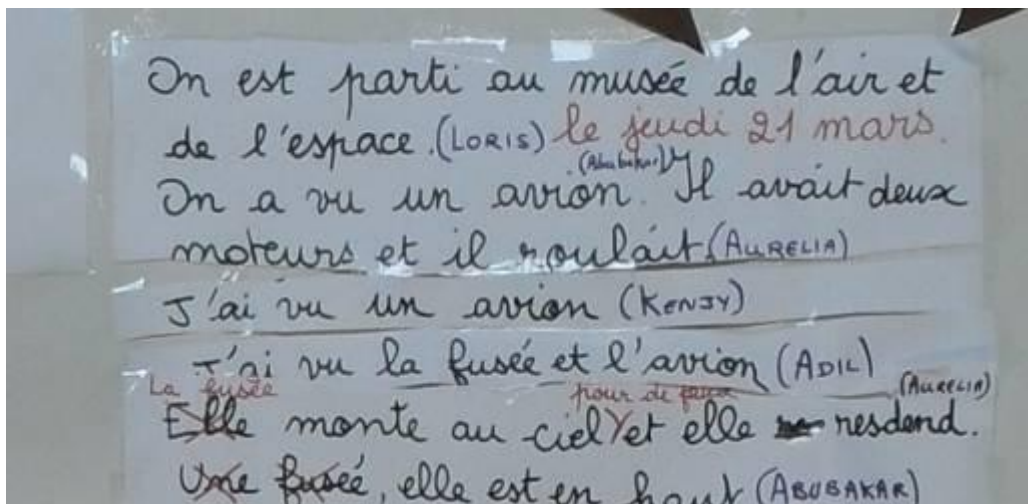 On est parti au musée de l'air et
de l'espace. (LORIS) le jeudi 21 mars.
(Abubakar)
On a vu un avion. Il avait deux
moteurs et il roulait (AURELIA)
J'ai vu un avion (KENJY)
J'ai vu la fusée et l'avion (ADIL)
La fusée pour de faux (AURELIA)
Elle monte au ciel et elle resdend.
Une fusée, elle est en haut (ABUBAKAR)